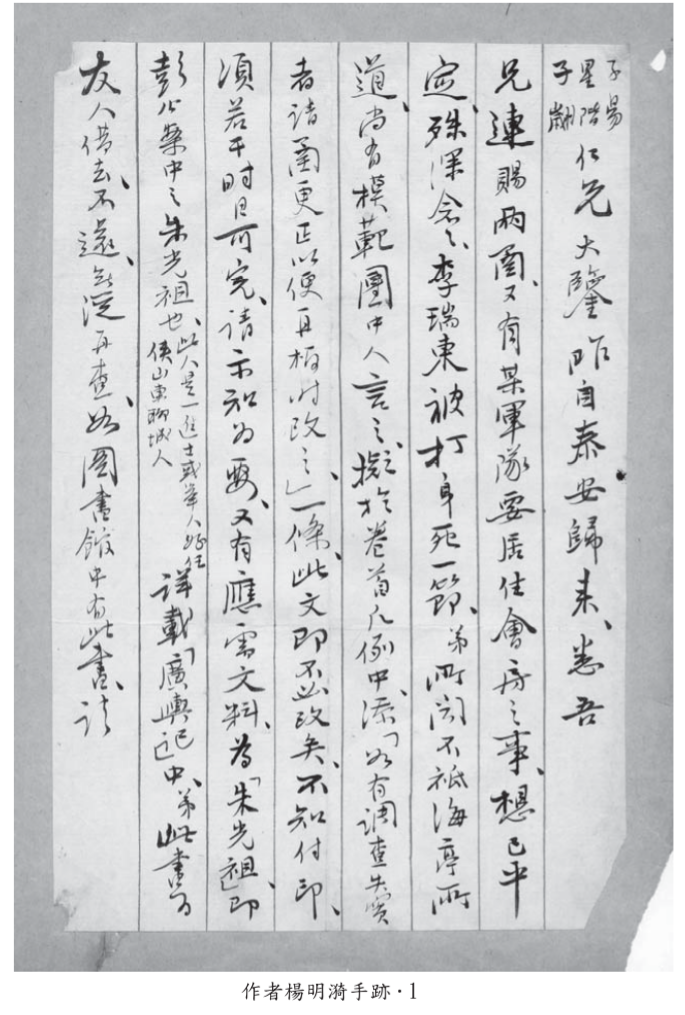 子易
星階
子翮 仁兄大鑒昨自泰安歸來、悉吾
兄連賜兩函、又有某軍隊要居住會房之事、想已中
定、殊深念之、李瑞東被打身死一節、弟所聞不祗海亭所
道、尚有模範團中人言之、擬於卷首凡例中添「如有調查失實
者請函更正以便再板時改之」一條、此文即不必改矣、不知付印、
須若干時日可完、請示知為要、又有應需文料、為「朱光祖」即
彭公案中之朱光祖也、此人是一進士或舉人出任
係山東聊城人
詳載「廣輿記」中、弟此書為
友人借去、不還、無從再查、如圖書館中有此書、請
作者楊明漪手跡·1